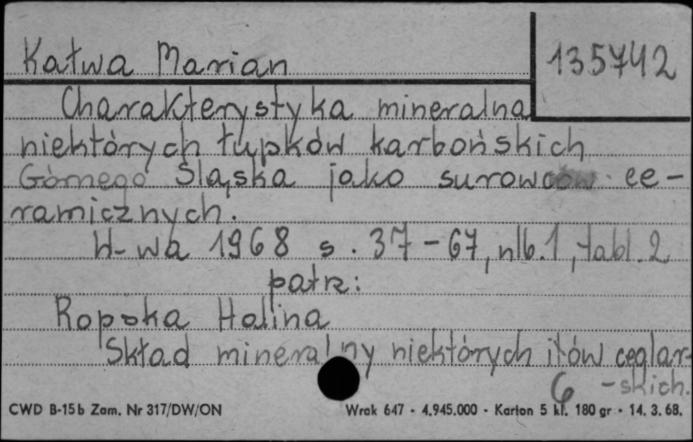 Kałwa Marian
135742
Charakterystyka mineralna
niektórych łupków karbońskich
Górnego Śląska jako surowców ce-
ramicznych.
W-wa 1968 s. 37-67, nlb. 1, tabl. 2
patrz:
Ropska Halina
Skład mineralny niektórych iłów ceglar-
6 -skich.
CWD B-15b Zam. Nr 317/DW/ON
Wrak 647 - 4.945.000 - Karton 5 kl. 180 gr - 14. 3. 68.